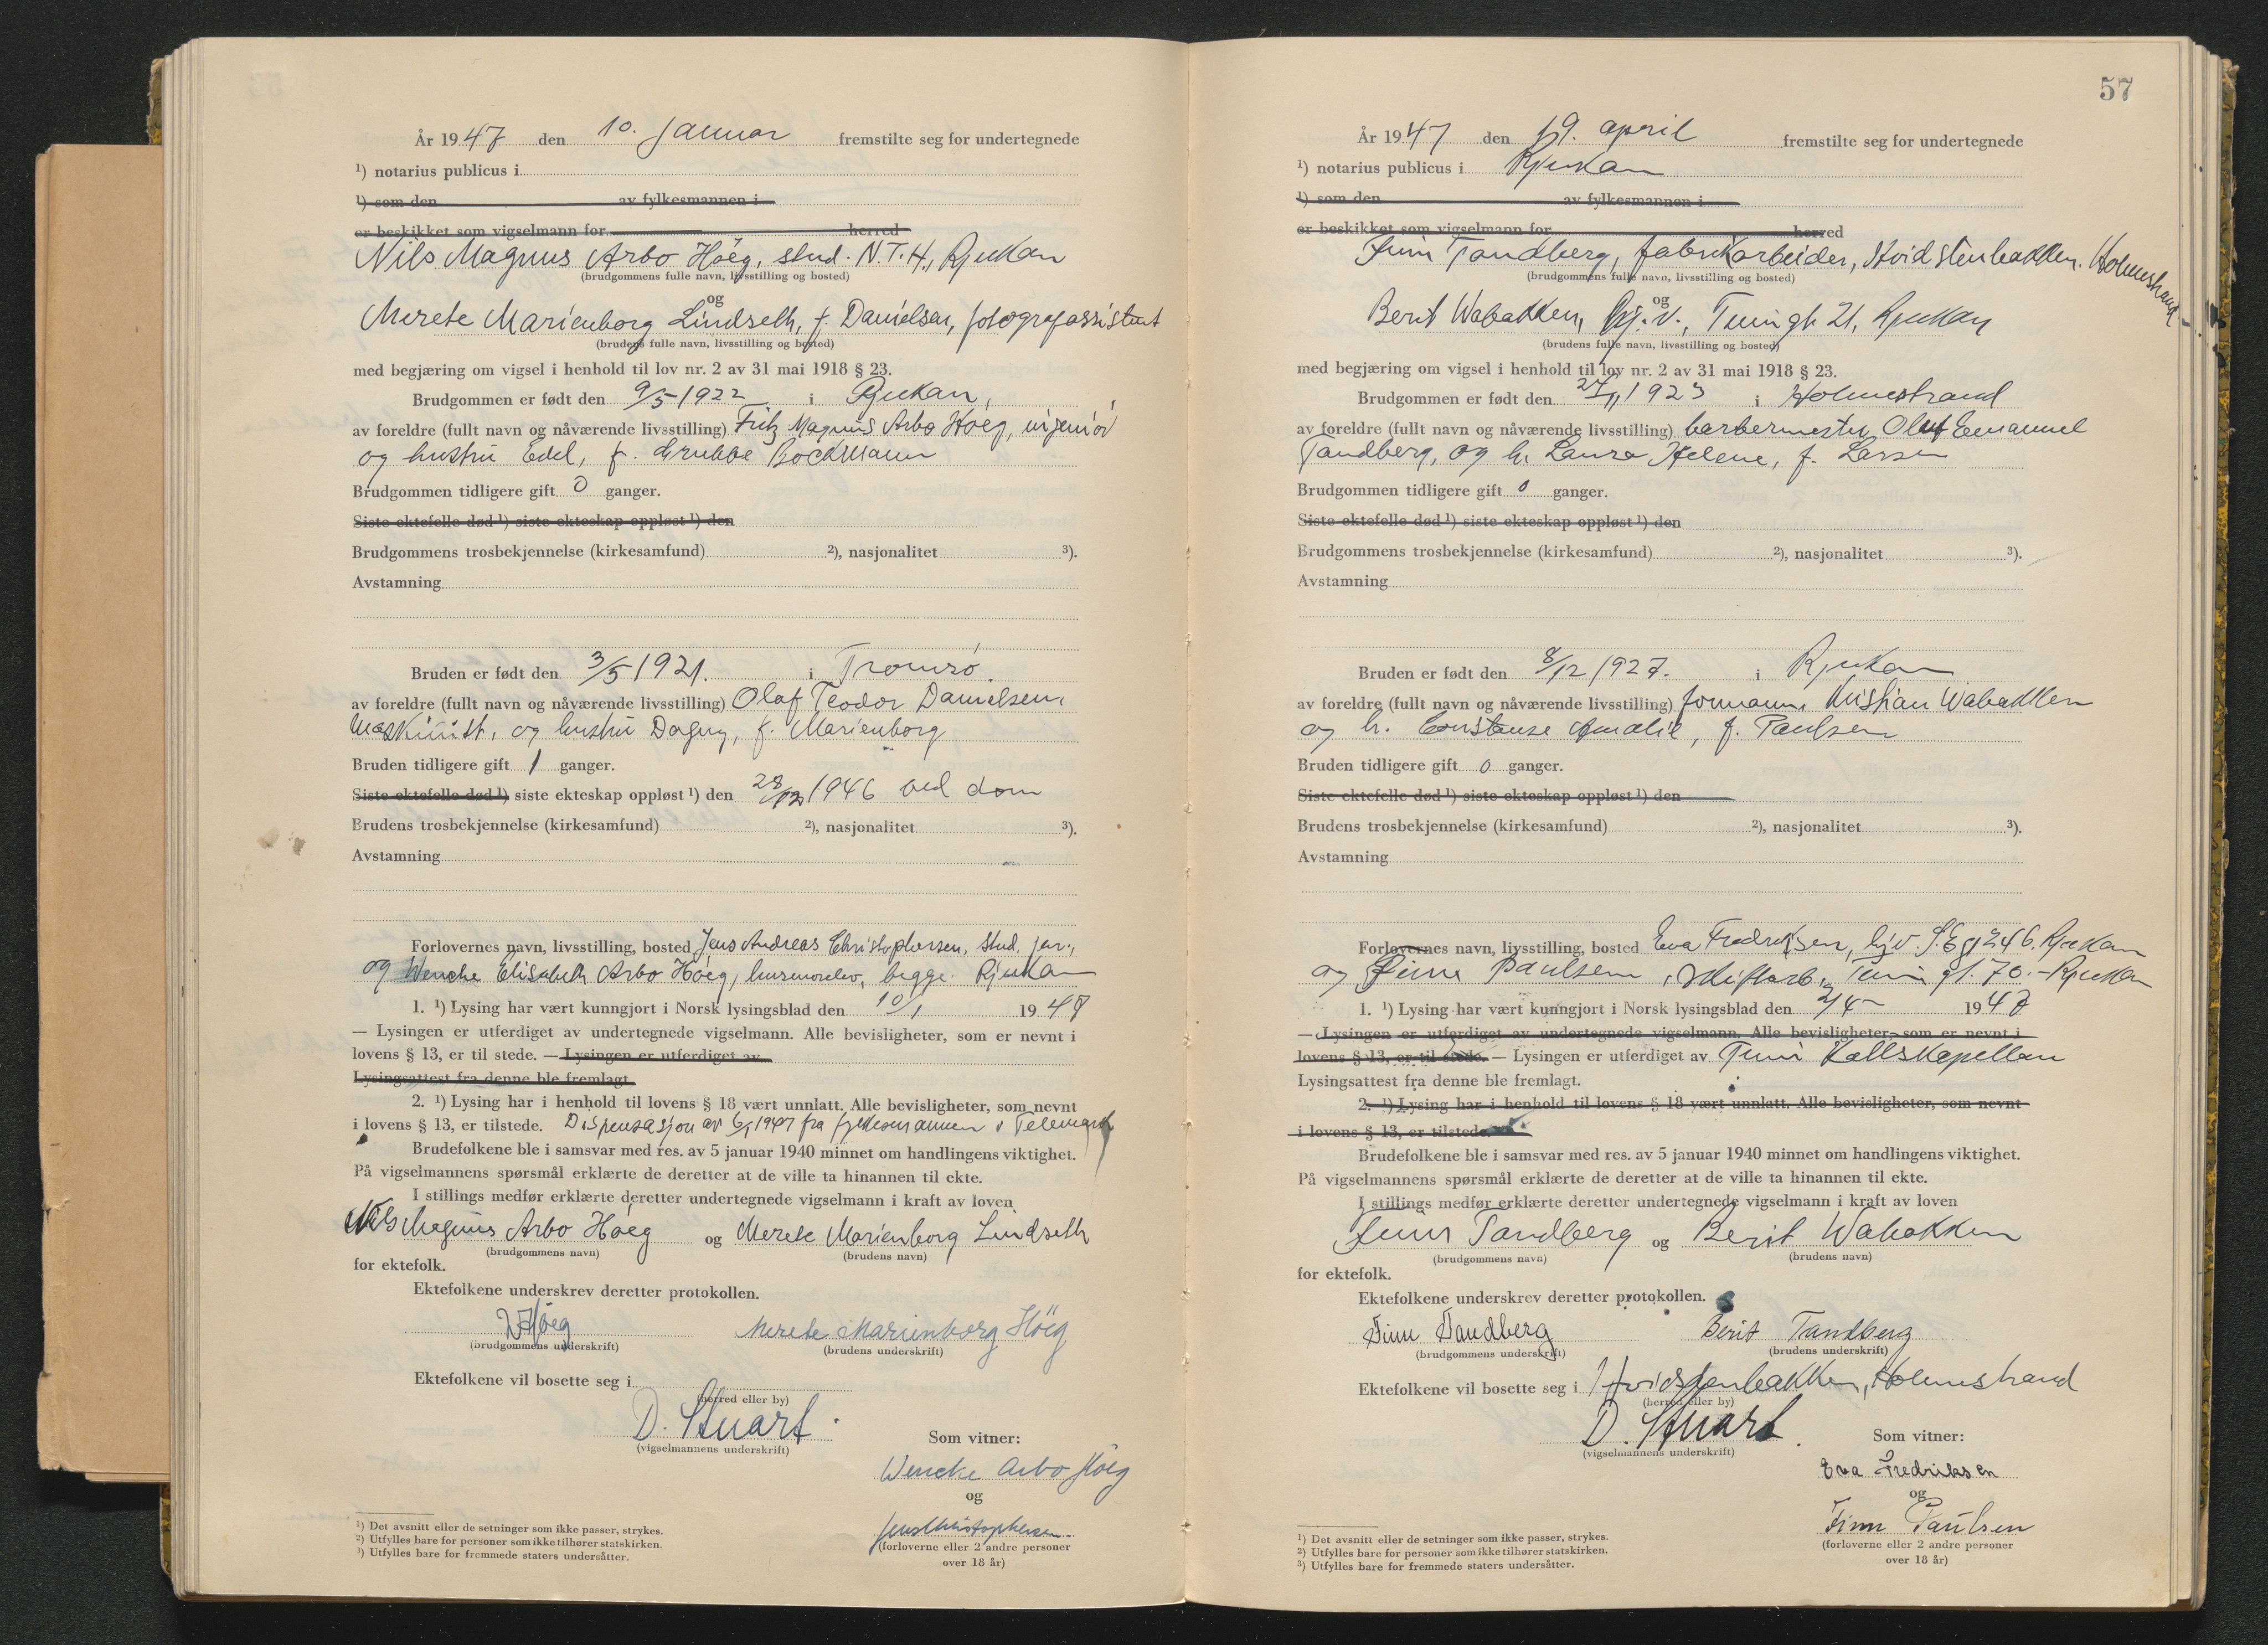 År 1947 den 10. januar fremstilte seg for undertegnede
¹) notarius publicus i
¹) som den av fylkesmannen i
er beskikket som vigselmann for herred
Nils Magnus Arbo Höeg, stud. N.T.H., Rjukan
(brudgommens fulle navn, livsstilling og bosted)
og
Merete Marienborg Lindseth, f. Danielsen, fotografassistent
(brudens fulle navn, livsstilling og bosted)
med begjæring om vigsel i henhold til lov nr. 2 av 31 mai 1918 § 23.
Brudgommen er født den 9/5 1922 i Rjukan,
av foreldre (fullt navn og nåværende livsstilling) Fritz Magnus Arbo Höeg, ingeniör
og hustru Edel, f. Grubbe Bockmann
Brudgommen tidligere gift 0 ganger.
Siste ektefelle død ¹) siste ekteskap oppløst ¹) den
Brudgommens trosbekjennelse (kirkesamfund) ²), nasjonalitet ³).
Avstamning
Bruden er født den 3/5 1921. i Tromsö.
av foreldre (fullt navn og nåværende livsstilling) Olaf Teodor Danielsen,
maskinist, og hustru Dagny, f. Marienborg
Bruden tidligere gift 1 ganger.
Siste ektefelle død ¹) siste ekteskap oppløst ¹) den 28/12 1946 ved dom
Brudens trosbekjennelse (kirkesamfund) ²), nasjonalitet ³).
Avstamning
Forlovernes navn, livsstilling, bosted Jens Andreas Christophersen, stud. jur.,
og Wencke Elisabeth Arbo Höeg, husmorelev, begge Rjukan
1. ¹) Lysing har vært kunngjort i Norsk lysingsblad den 10/1 1947
— Lysingen er utferdiget av undertegnede vigselmann. Alle bevisligheter, som er nevnt i
lovens § 13, er til stede. — Lysingen er utferdiget av
Lysingsattest fra denne ble fremlagt.
2. ¹) Lysing har i henhold til lovens § 18 vært unnlatt. Alle bevisligheter, som nevnt
i lovens § 13, er tilstede. Dispensasjon av 6/1 1947 fra fylkesmannen i Telemark
Brudefolkene ble i samsvar med res. av 5 januar 1940 minnet om handlingens viktighet.
På vigselmannens spørsmål erklærte de deretter at de ville ta hinannen til ekte.
I stillings medfør erklærte deretter undertegnede vigselmann i kraft av loven
Nils Magnus Arbo Höeg og Merete Marienborg Lindseth
(brudgommens navn) (brudens navn)
for ektefolk.
Ektefolkene underskrev deretter protokollen.
Höeg Merete Marienborg Höeg
(brudgommens underskrift) (brudens underskrift)
Ektefolkene vil bosette seg i
(herred eller by)
D. Stuart.
(vigselmannens underskrift) Som vitner:
Wencke Arbo Höeg
og
Jens Christophersen
(forloverne eller 2 andre personer
over 18 år)
¹) Det avsnitt eller de setninger som ikke passer, strykes.
²) Utfylles bare for personer som ikke tilhører statskirken.
³) Utfylles bare for fremmede staters undersåtter.
57
År 1947 den 19. april fremstilte seg for undertegnede
¹) notarius publicus i Rjukan
¹) som den av fylkesmannen i
er beskikket som vigselmann for herred
Finn Tandberg, fabrikkarbeider, Hvidstenbakken, Holmestrand
(brudgommens fulle navn, livsstilling og bosted)
og
Berit Wabakken, hj.v., Tuin gt. 21, Rjukan
(brudens fulle navn, livsstilling og bosted)
med begjæring om vigsel i henhold til lov nr. 2 av 31 mai 1918 § 23.
Brudgommen er født den 27/11 1923 i Holmestrand
av foreldre (fullt navn og nåværende livsstilling) barbermester Oluf Emanuel
Tandberg, og h. Laura Helene, f. Larsen
Brudgommen tidligere gift 0 ganger.
Siste ektefelle død ¹) siste ekteskap oppløst ¹) den
Brudgommens trosbekjennelse (kirkesamfund) ²), nasjonalitet ³).
Avstamning
Bruden er født den 8/12 1927. i Rjukan
av foreldre (fullt navn og nåværende livsstilling) formann, Kristian Wabakken
og h. Constanse Amalie, f. Paulsen
Bruden tidligere gift 0 ganger.
Siste ektefelle død ¹) siste ekteskap oppløst ¹) den
Brudens trosbekjennelse (kirkesamfund) ²), nasjonalitet ³).
Avstamning
Forlovernes navn, livsstilling, bosted Eva Fredriksen, hj.v. 246, Rjukan
og Finn Paulsen, skiftarb., Tuin gt. 70. - Rjukan
1. ¹) Lysing har vært kunngjort i Norsk lysingsblad den 2/4 1947
— Lysingen er utferdiget av undertegnede vigselmann. Alle bevisligheter, som er nevnt i
lovens § 13, er til stede. — Lysingen er utferdiget av Tinn Kallskapellan
Lysingsattest fra denne ble fremlagt.
2. ¹) Lysing har i henhold til lovens § 18 vært unnlatt. Alle bevisligheter, som nevnt
i lovens § 13, er tilstede.
Brudefolkene ble i samsvar med res. av 5 januar 1940 minnet om handlingens viktighet.
På vigselmannens spørsmål erklærte de deretter at de ville ta hinannen til ekte.
I stillings medfør erklærte deretter undertegnede vigselmann i kraft av loven
Finn Tandberg og Berit Wabakken
(brudgommens navn) (brudens navn)
for ektefolk.
Ektefolkene underskrev deretter protokollen.
Finn Tandberg Berit Tandberg
(brudgommens underskrift) (brudens underskrift)
Ektefolkene vil bosette seg i Hvidstenbakken, Holmestrand
(herred eller by)
D. Stuart.
(vigselmannens underskrift) Som vitner:
Eva Fredriksen
og
Finn Paulsen
(forloverne eller 2 andre personer
over 18 år)
¹) Det avsnitt eller de setninger som ikke passer, strykes.
²) Utfylles bare for personer som ikke tilhører statskirken.
³) Utfylles bare for fremmede staters undersåtter.